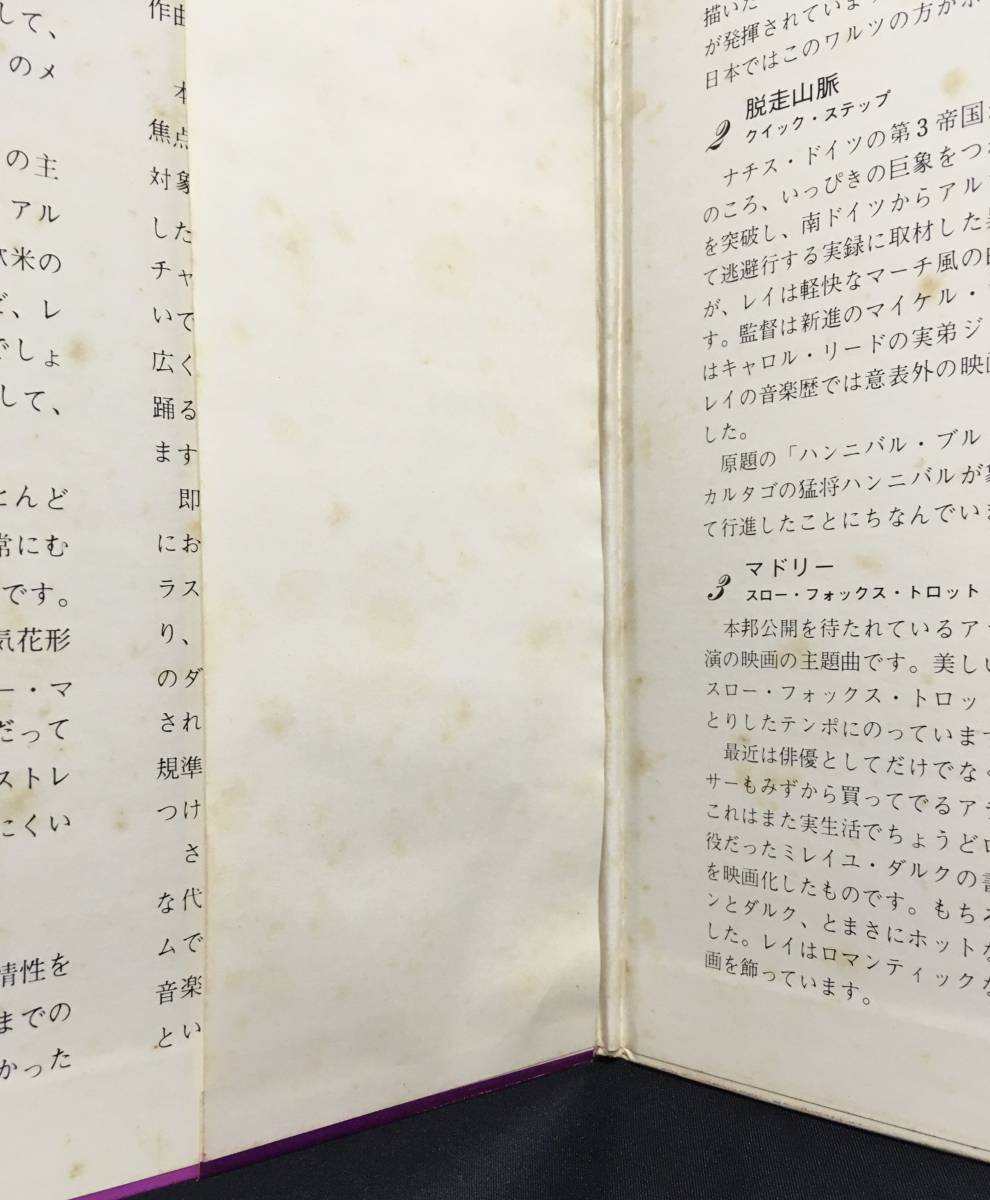 して、
のメ
の主
アル
米の
、レ
でしょ
して、
とんど
常にむ
です。
気花形
ー・マ
だって
ストレ
にくい
情性を
までの
かった
作曲
本
焦点
対象
した
チャ
いて
広く
踊る
ます
即
にお
ラス
り、
のダ
され
規準
つけ
さ
な代
ムで
音楽
とい
描いた
が発揮されています
日本ではこのワルツの方が
2 脱走山脈
クイック・ステップ
ナチス・ドイツの第3帝国
のころ、いっぴきの巨象をつ
を突破し、南ドイツからアル
て逃避行する実録に取材した
が、レイは軽快なマーチ風の
す。監督は新進のマイケル・
はキャロル・リードの実弟ジ
レイの音楽歴では意表外の映画
した。
原題の「ハンニバル・ブル
カルタゴの猛将ハンニバルが
て行進したことにちなんでい
3 マドリー
スロー・フォックス・トロット
本邦公開を待たれているア
演の映画の主題曲です。美しい
スロー・フォックス・トロッ
とりしたテンポにのっています
最近は俳優としてだけでなく
サーもみずから買ってでるアラ
これはまた実生活でちょうど
役だったミレイユ・ダルクの
を映画化したものです。もちろ
ンとダルク、とまさにホットな
した。レイはロマンティックな
画を飾っています。